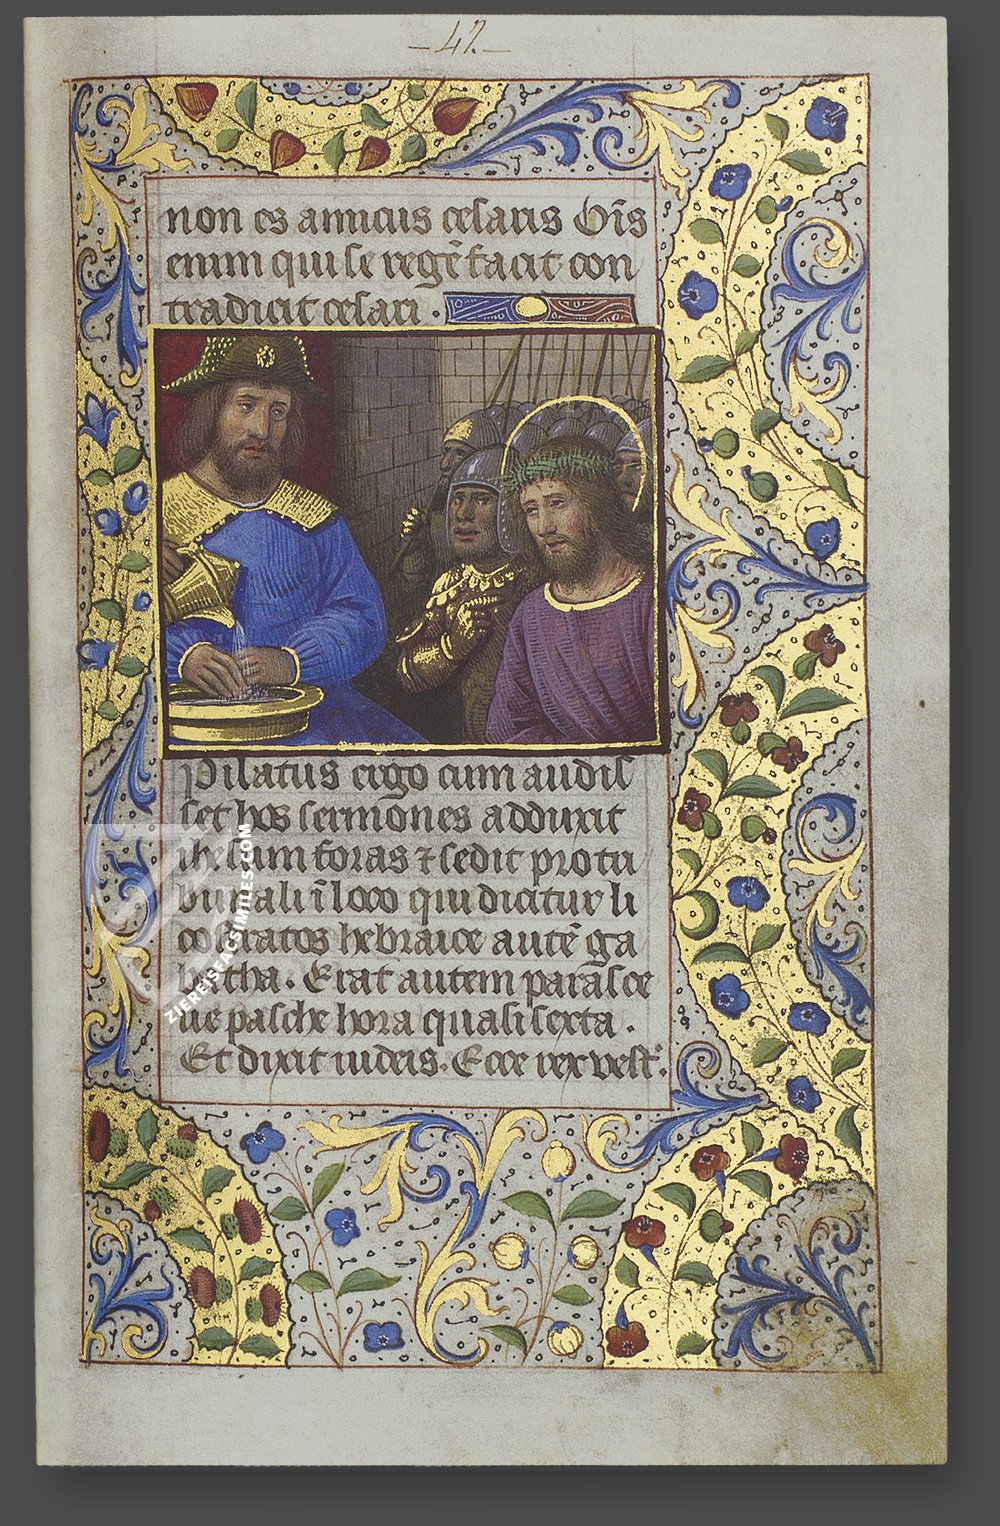 –47–
non es amicus cesaris Oīs
enim qui se regē facit con
tradicit cesari .
Pilatus ergo cum audis
set hos sermones adduxit
ihesum foras ⁊ sedit pro tri
bunali ī loco qui dicitur li
costratos hebraice autē ga
batha . Erat autem parasce
ue pasche hora quasi sexta .
Et dixit iudeis . Ecce rex vest̄ .
ZIEREISFACSIMILES.COM